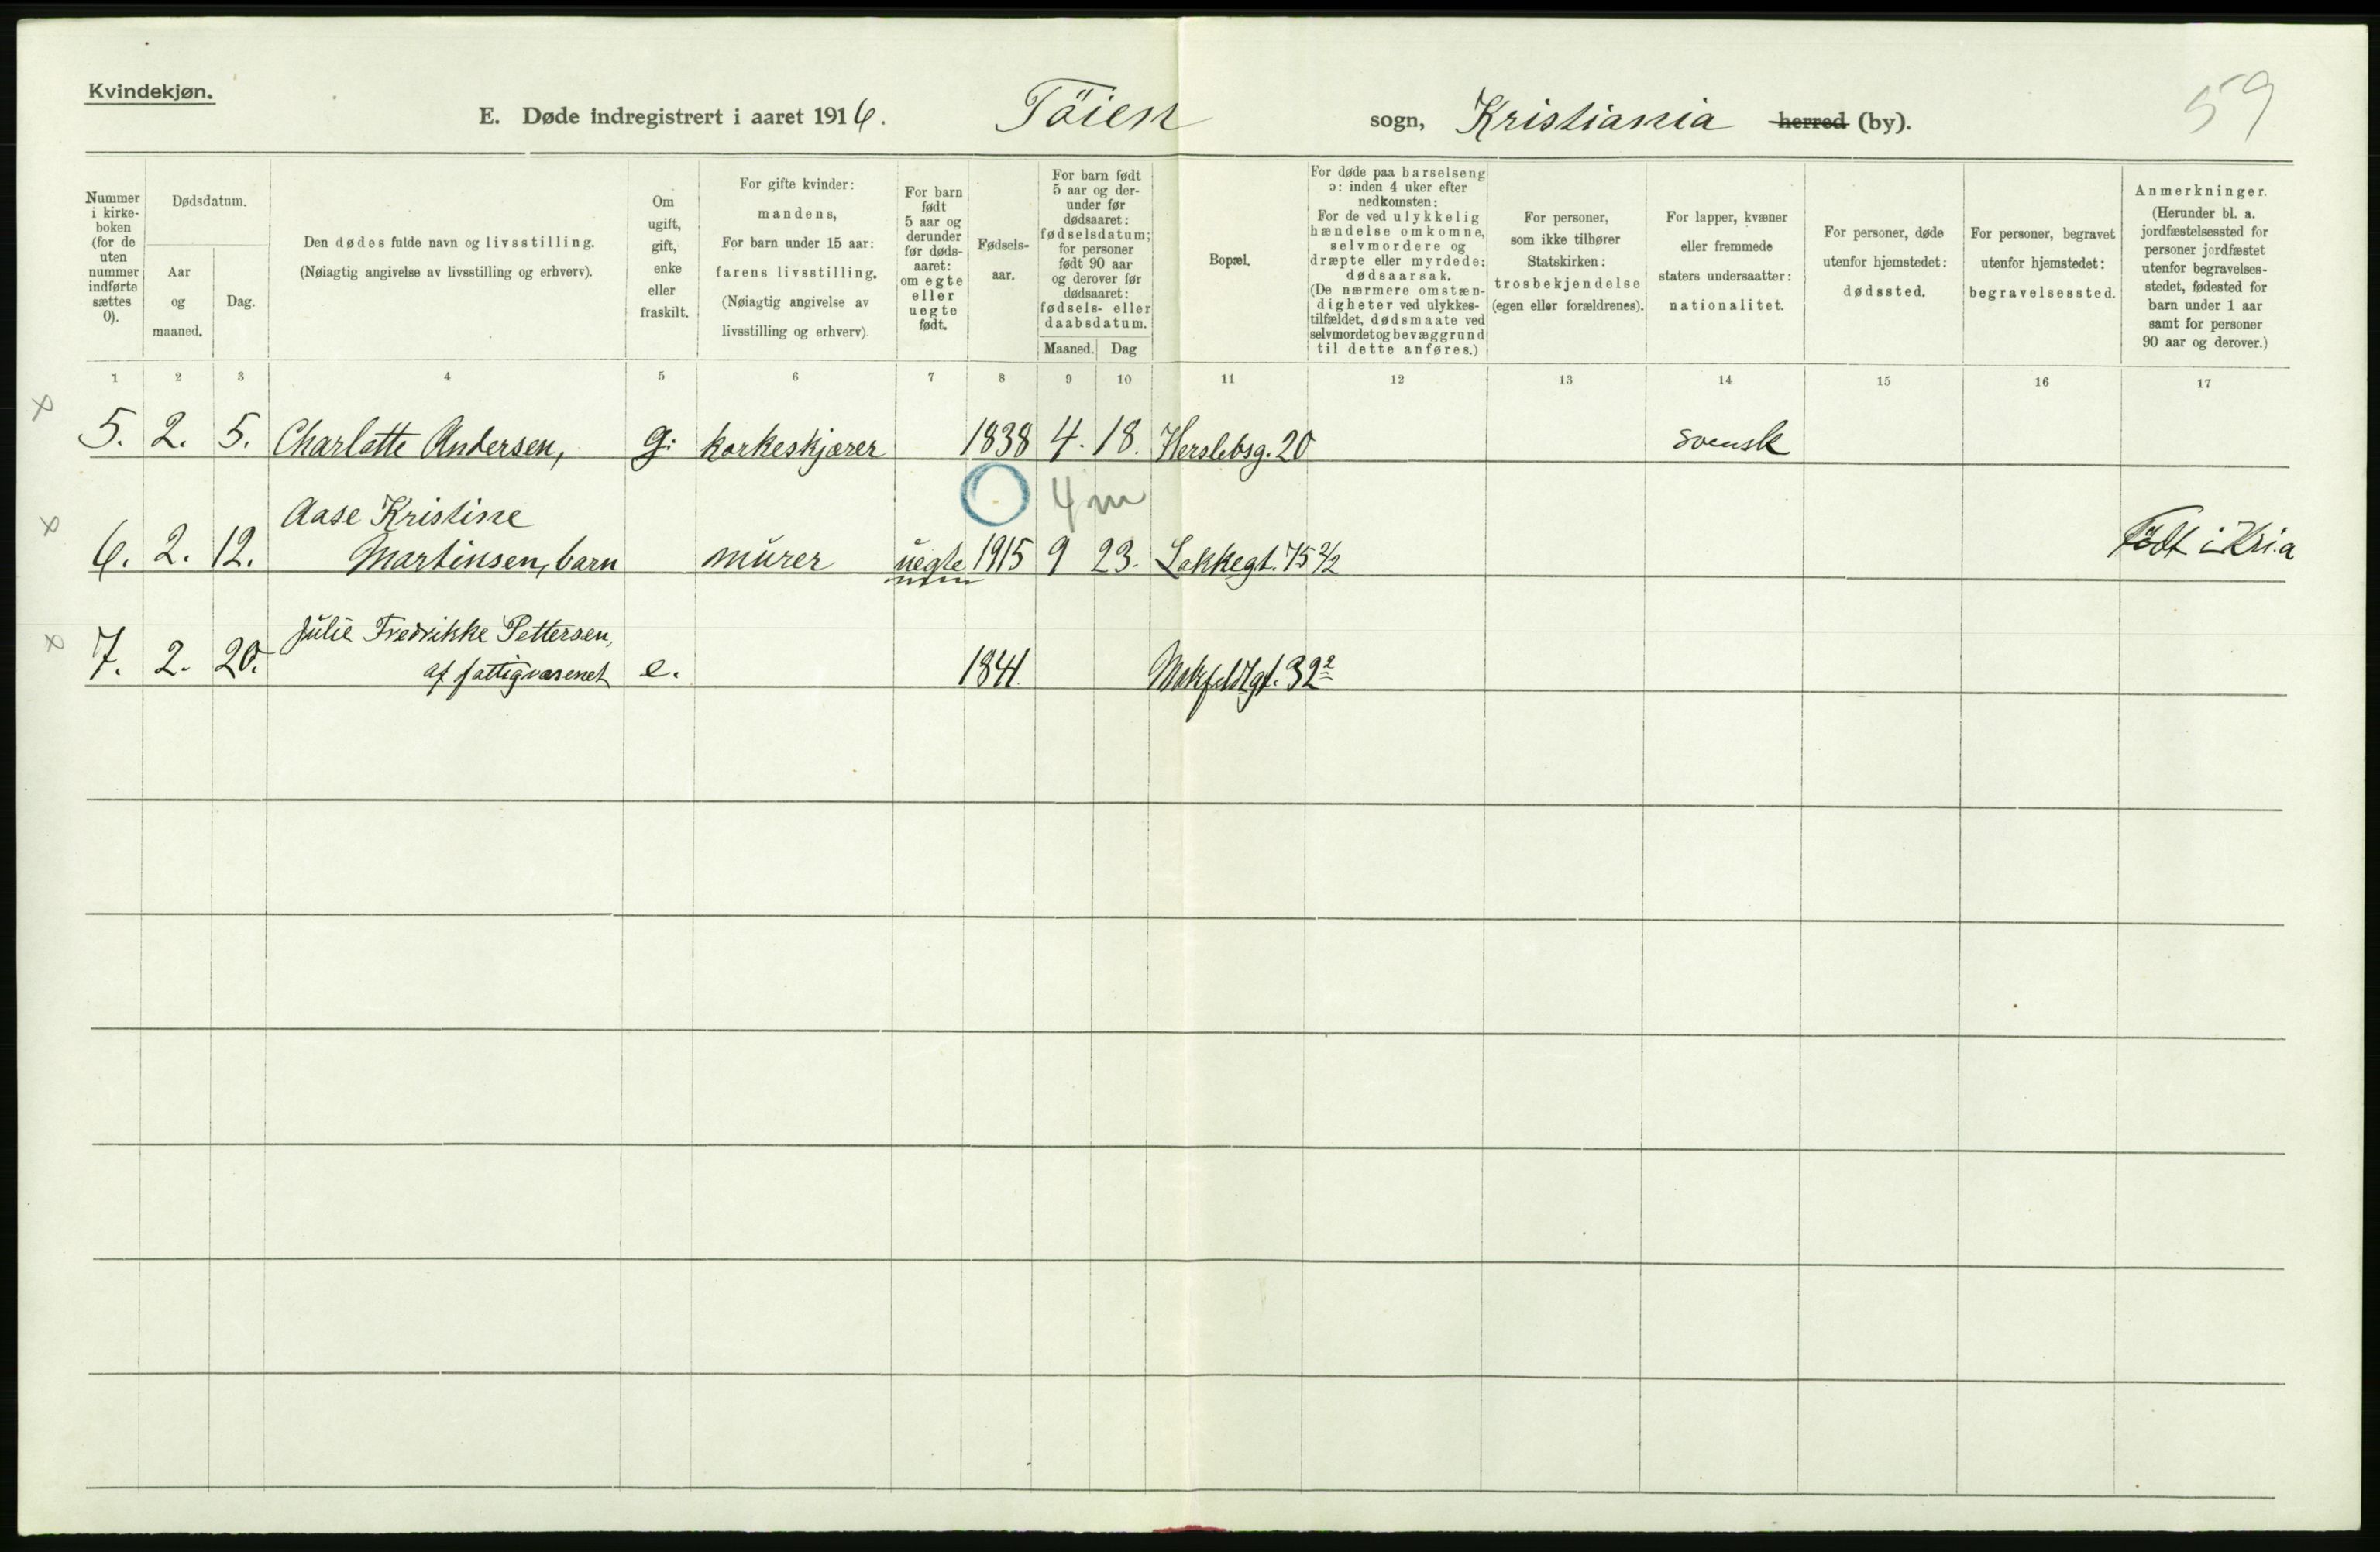 Kvindekjøn.
E. Døde indregistrert i aaret 1916. Töien sogn, Kristiania herred (by). 59
Nummer i kirke-boken (for de uten nummer indførte sættes 0).
Dødsdatum.
Aar og maaned.
Dag.
Den dødes fulde navn og livsstilling.
(Nøiagtig angivelse av livsstilling og erhverv).
Om ugift, gift, enke eller fraskilt.
For gifte kvinder:
mandens,
For barn under 15 aar:
farens livsstilling.
(Nøiagtig angivelse av
livsstilling og erhverv).
For barn født 5 aar og derunder før døds-aaret: om egte eller uegte født.
Fødsels-aar.
For barn født 5 aar og der-under før dødsaaret: fødselsdatum; for personer født 90 aar og derover før dødsaaret: fødsels- eller daabsdatum.
Maaned. Dag
Bopæl.
For døde paa barselseng
ɔ: inden 4 uker efter
nedkomsten:
For de ved ulykkelig
hændelse omkomne,
selvmordere og
dræpte eller myrdede:
dødsaarsak.
(De nærmere omstæn-
digheter ved ulykkes-
tilfældet, dødsmaate ved
selvmordet og bevæggrund
til dette anføres.)
For personer,
som ikke tilhører
Statskirken:
trosbekjendelse
(egen eller forældrenes).
For lapper, kvæner
eller fremmede
staters undersaatter:
nationalitet.
For personer, døde
utenfor hjemstedet:
dødssted.
For personer, begravet
utenfor hjemstedet:
begravelsessted.
Anmerkninger.
(Herunder bl. a.
jordfæstelsessted for
personer jordfæstet
utenfor begravelses-
stedet, fødested for
barn under 1 aar
samt for personer
90 aar og derover.)
1 2 3 4 5 6 7 8 9 10 11 12 13 14 15 16 17
x 5. 2. 5. Charlotte Andersen, g. korkeskjærer 1838 4. 18. Herslebsg. 20 svensk
4 m
Aase Kristine
x 6. 2. 12. Martinsen, barn murer uegte 1915 9 23. Lakkegt. 75 2/2 Födt i Kr.a
Julie Fredrikke Pettersen,
x 7. 2. 20. af fattigvæsenet e. 1841. 32 2